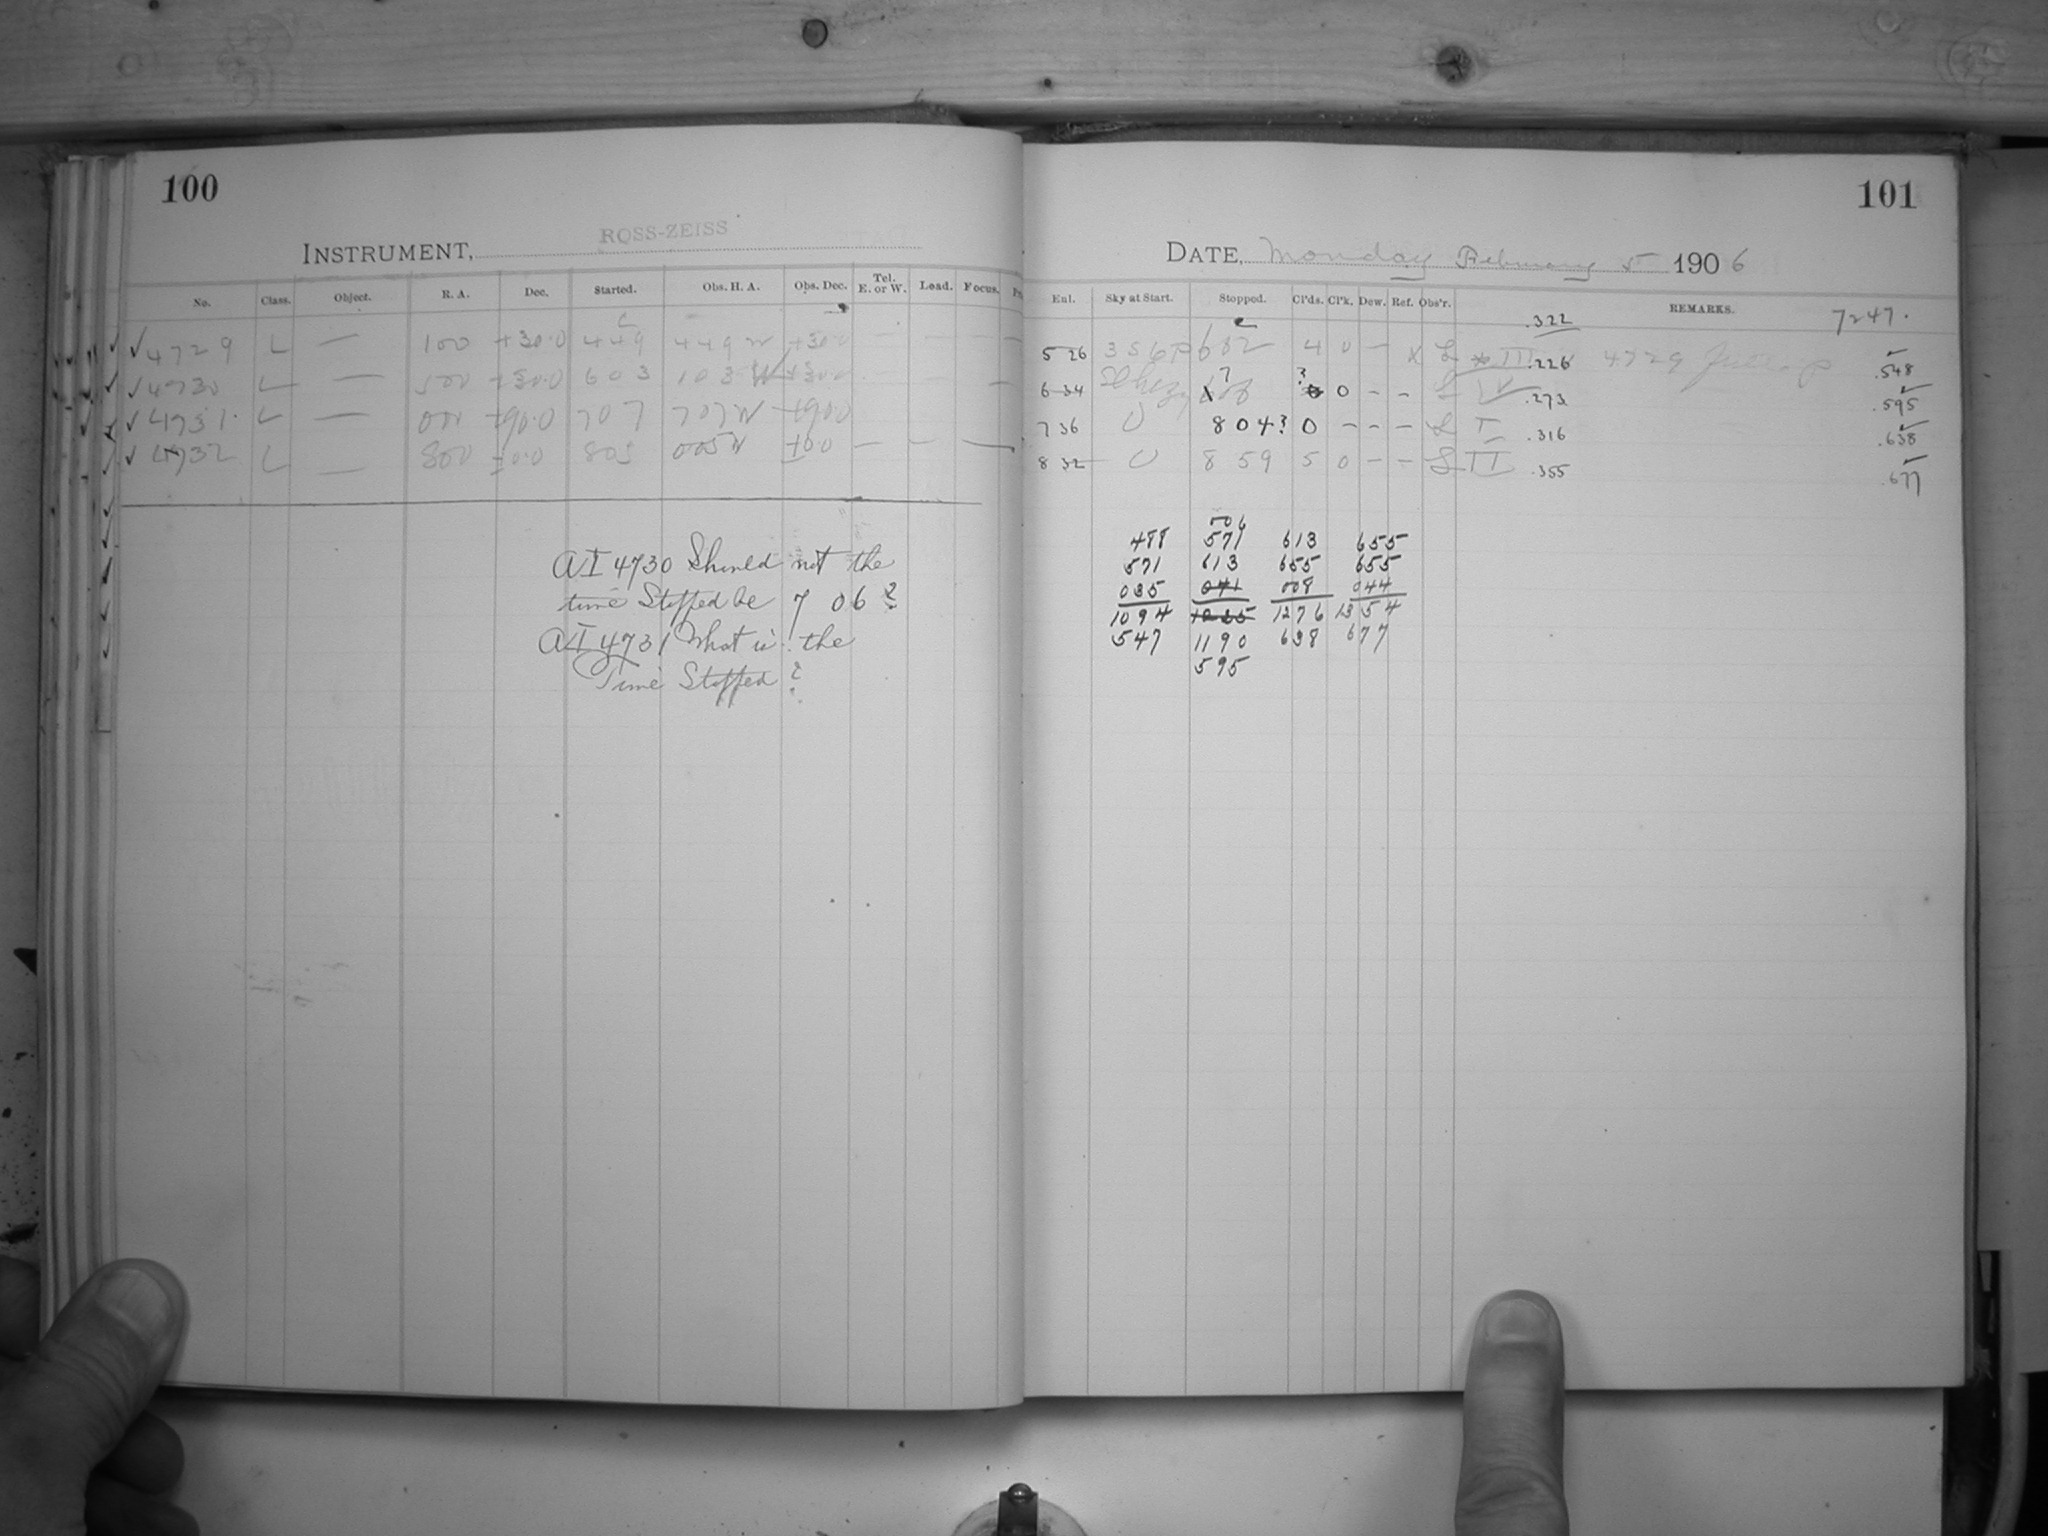 100
INSTRUMENT, ROSS-ZEISS
No. Class. Object. R. A. Dec. Started. Obs. H. A. Obs. Dec. Tel. E. or W. Load. Focus.
✓ 4729 L — 100 +30.0 449 449 W +30.0
✓ 4730 L — 500 +30.0 603 103 W +30.0
✓ 4731 L — 000 +90.0 707 707 W +90.0
✓ 4732 L — 800 ±0.0 805 005 W ±0.0 — — —
AI 4730 Should not the
time Stopped be 7 06 ?
AI 4731 What is the
Time Stopped ?
101
DATE, Monday February 5 1906
Enl. Sky at Start. Stopped. Cl'ds. Cl'k. Dew. Ref. Obs'r. REMARKS.
.322 7247.
5 26 4 0 — X L III .226 4729 .548
6 34 ? ? 0 - - L IV .273 .595
7 36 0 8 04? 0 - - - L I .316 .638
8 32 0 8 59 5 0 - - L II .355 .677
506
488 571 613 655
571 613 655 655
035 041 008 044
1094 1225 1276 1354
547 1190 638 677
595